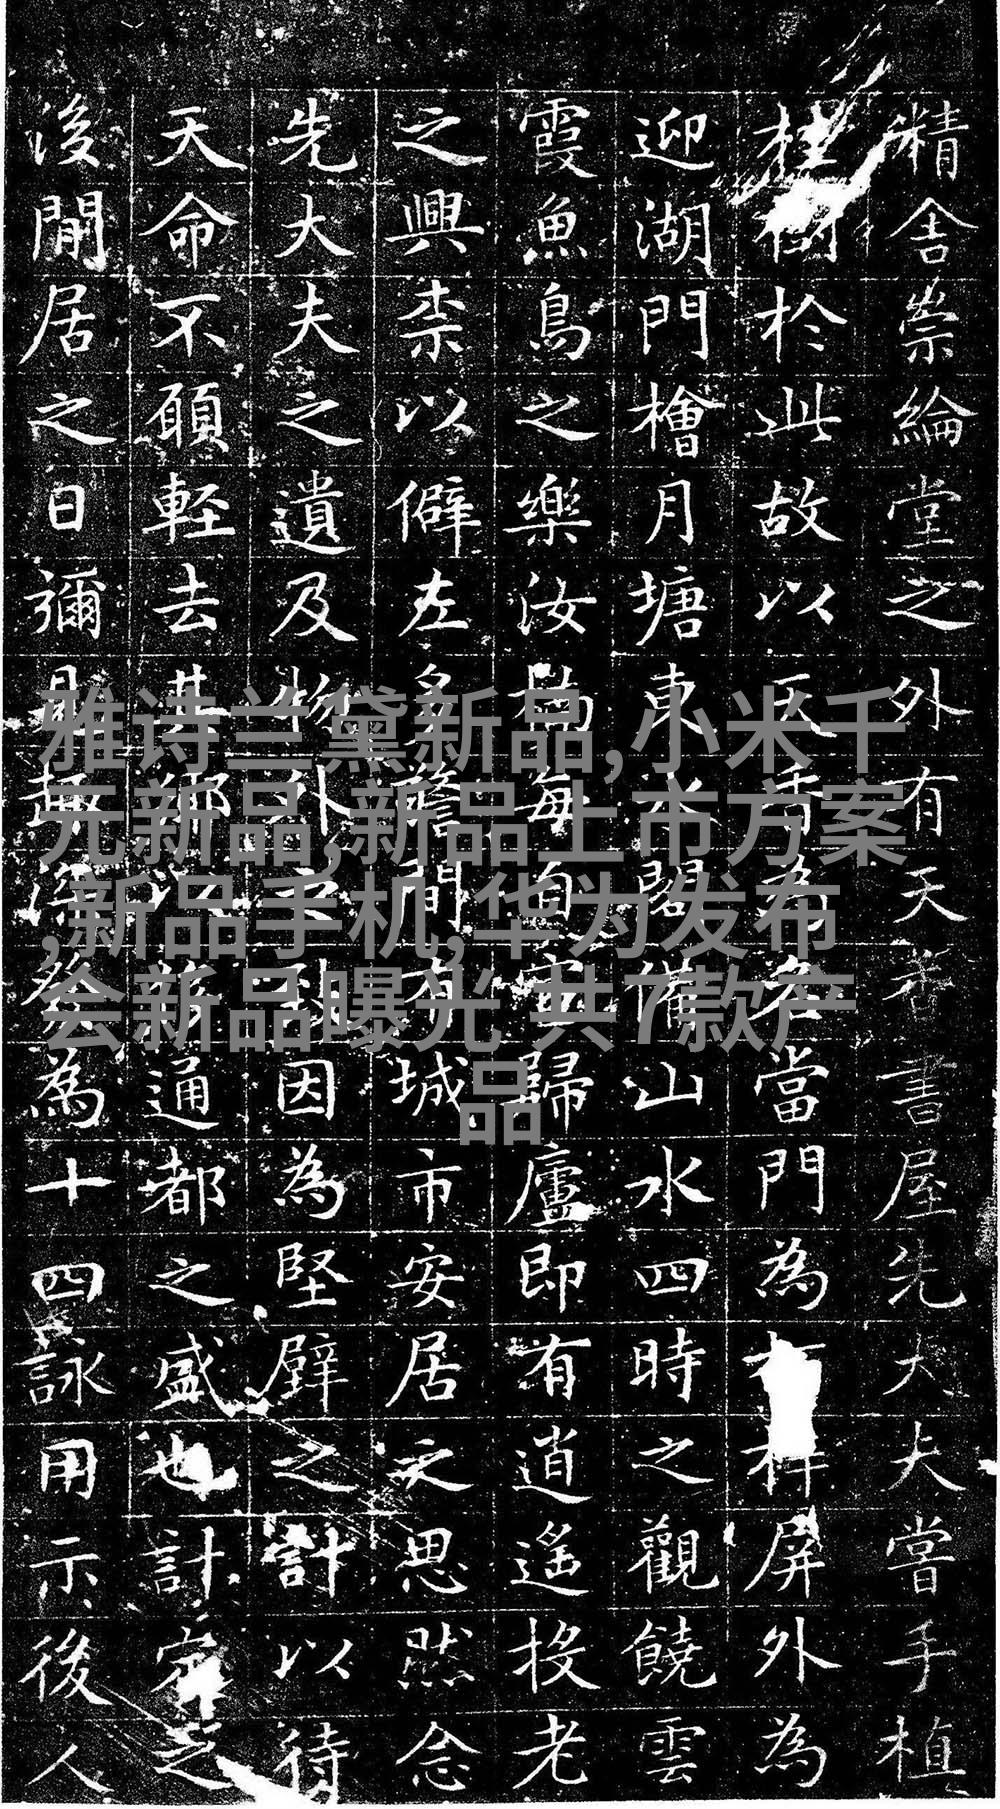 精舍崇綸堂之外有天香書屋先大夫嘗手植
桂樹於此故以香為名當門為樨屏外為
迎湖門檜月塘東水閣備山水四時之觀饒雲
霞魚鳥之樂汝為每自歸廬即有逍遙投老
之興柰以僻左多間有城市安居之思然念
先大夫之遺及物外之因為堅壁之計以待
天命不願輕去其鄉以通都之盛也計定之
後閒居之日彌趣深為十四詠用示後人
雅诗兰黛新品,小米千
元新品,新品上市方案
,新品手机,华为发布
会新品曝光 共7款产
品